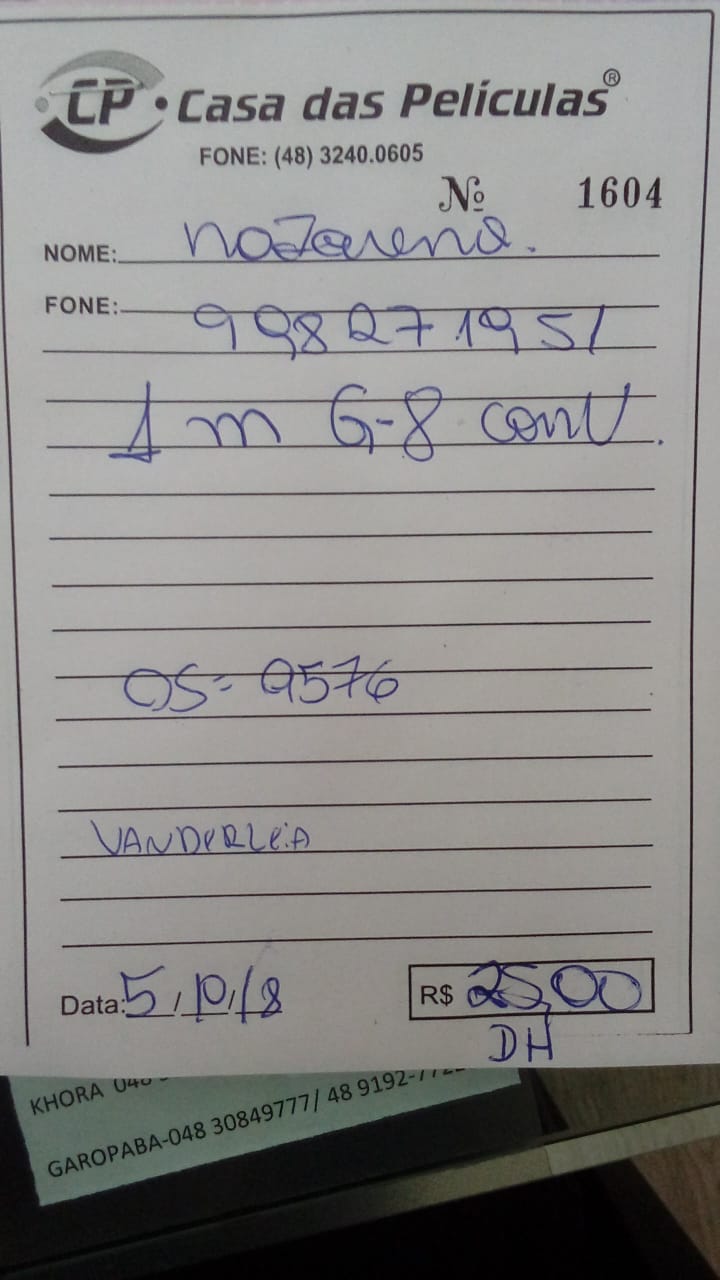 CP • Casa das Películas®
FONE: (48) 3240.0605
Nº 1604
NOME: Nazareno.
FONE: 998271951
1 m G-8 conv.
OS = 9576
VANDERLEIA
Data: 5/10/18 R$ 25,00
DH
KHORA 048
GAROPABA-048 30849777/ 48 9192-